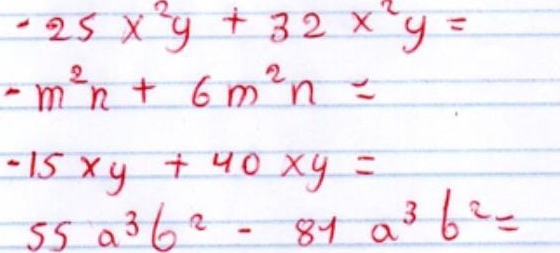 -25 x²y + 32 x²y =
-m²n + 6m²n =
-15 xy + 40 xy =
55 a³b² - 81 a³ b² =